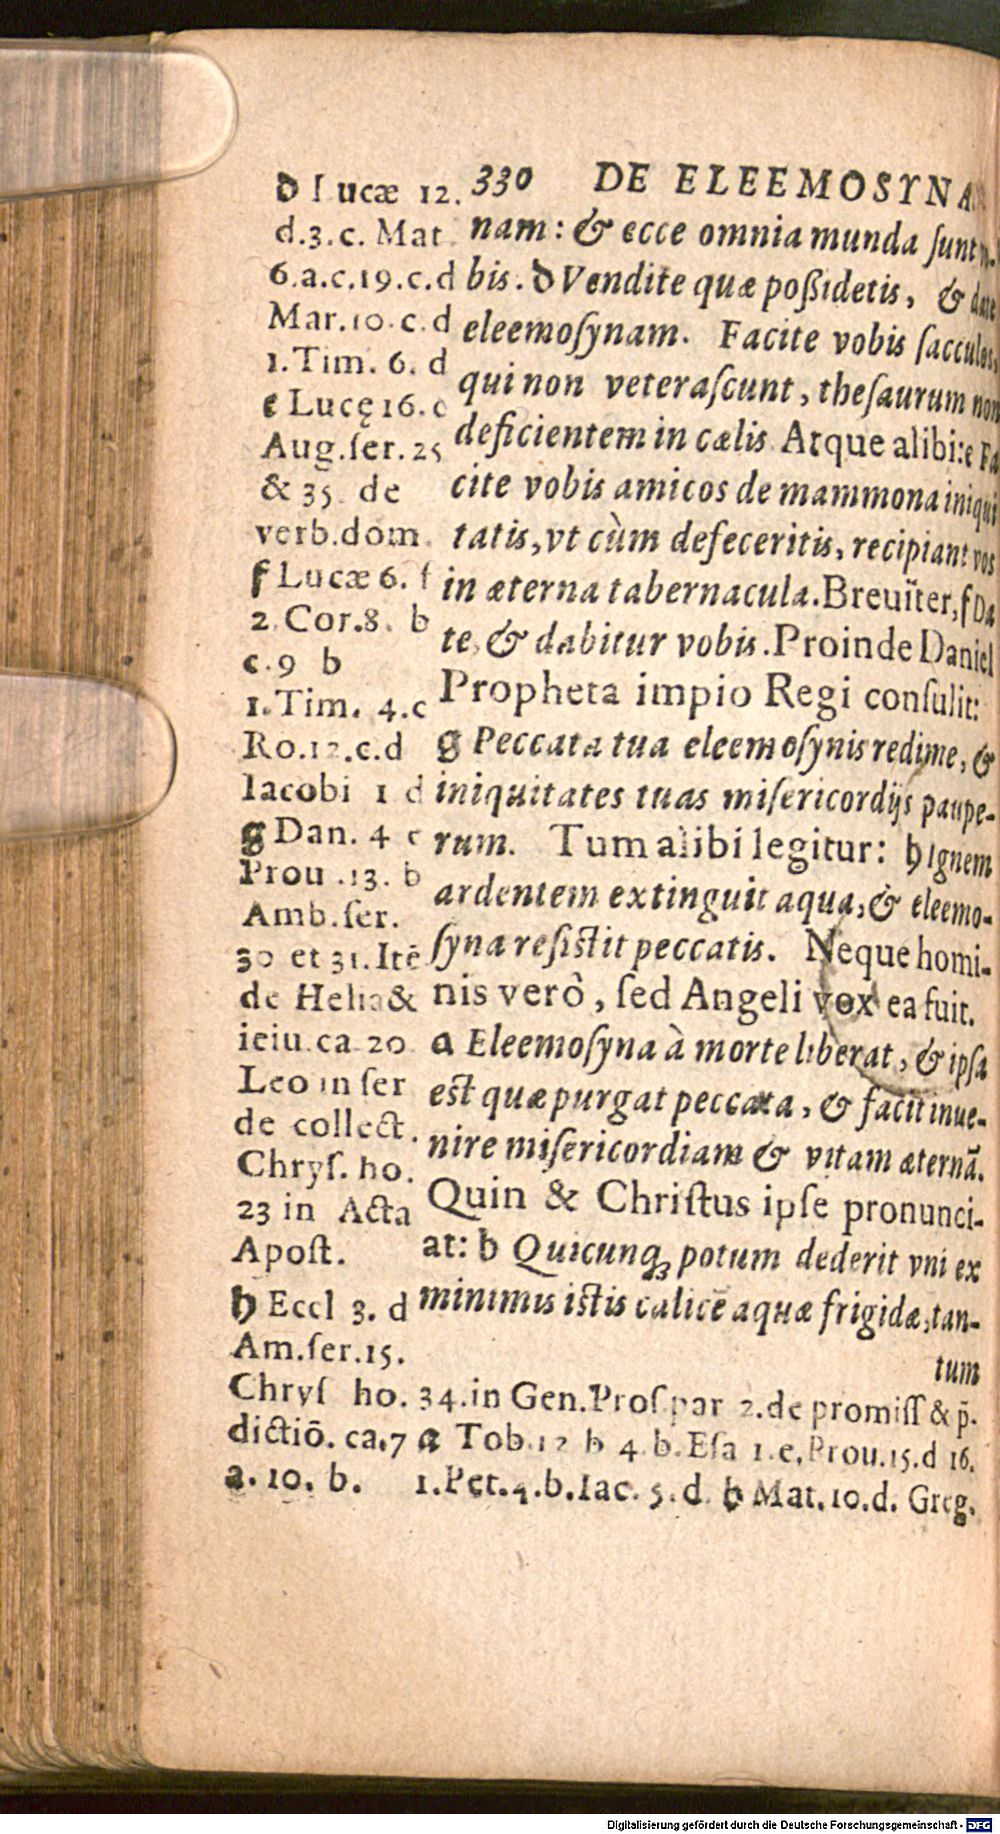 330 DE ELEEMOSYNA
nam: & ecce omnia munda ſunt
bis. d Vendite quæ poßidetis, & date
eleemoſynam. Facite vobis ſacculos,
qui non veteraſcunt, theſaurum non
deficientem in cælis. Atque alibi: e Fa
cite vobis amicos de mammona iniqui
tatis, vt cùm defeceritis, recipiant vos
in æterna tabernacula. Breuīter, f Da
te, & dabitur vobis. Proinde Daniel
Propheta impio Regi conſulit:
g Peccata tua eleemoſynis redime, &
iniquitates tuas miſericordijs paupe-
rum. Tum alibi legitur: h Ignem
ardentem extinguit aqua, & eleemo-
ſyna reſiſtit peccatis. Neque homi-
nis verò, ſed Angeli vox ea fuit.
a Eleemoſyna à morte liberat, & ipſa
eſt quæ purgat peccata, & facit inue-
nire miſericordiam & vitam æternā.
Quin & Chriſtus ipſe pronunci-
at: b Quicunq; potum dederit vni ex
minimis iſtis calicē aquæ frigidæ, tan-
tum
d Lucæ 12.
d.3.c. Mat.
6.a.c.19.c.d
Mar.10.c.d
1.Tim. 6. d
e Lucę 16. c
Aug.ſer. 25
& 35 de
verb.dom.
f Lucæ 6. f
2.Cor.8. b
c.9 b
1.Tim. 4.c
Ro.12.c.d
Iacobi 1 d
g Dan. 4 c
Prou .13. b
Amb.ſer.
30 et 31. Itē
de Helia &
ieiu.ca.20
Leo in ſer
de collect.
Chryſ. ho.
23 in Acta
Apoſt.
h Eccl 3. d
Am.ſer.15.
Chryſ ho. 34.in Gen.Proſpar 2.de promiſſ & p̄.
dictiō. ca.7 a Tob.12 b 4.b.Eſa 1.e.Prou.15.d 16.
a. 10. b. 1.Pet.4.b.Iac. 5.d. b Mat.10.d. Greg.
Digitalisierung gefördert durch die Deutsche Forschungsgemeinschaft - DFG